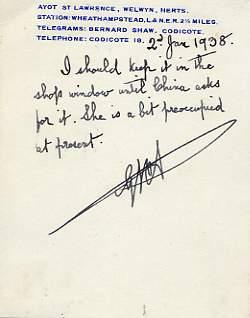 AYOT ST LAWRENCE, WELWYN, HERTS.
STATION: WHEATHAMPSTEAD, L & N.E.R. 2¼ MILES.
TELEGRAMS: BERNARD SHAW, CODICOTE.
TELEPHONE: CODICOTE 18.
2d Jan 1938.
I should keep it in the
shop window until China asks
for it. She is a bit preoccupied
at present.